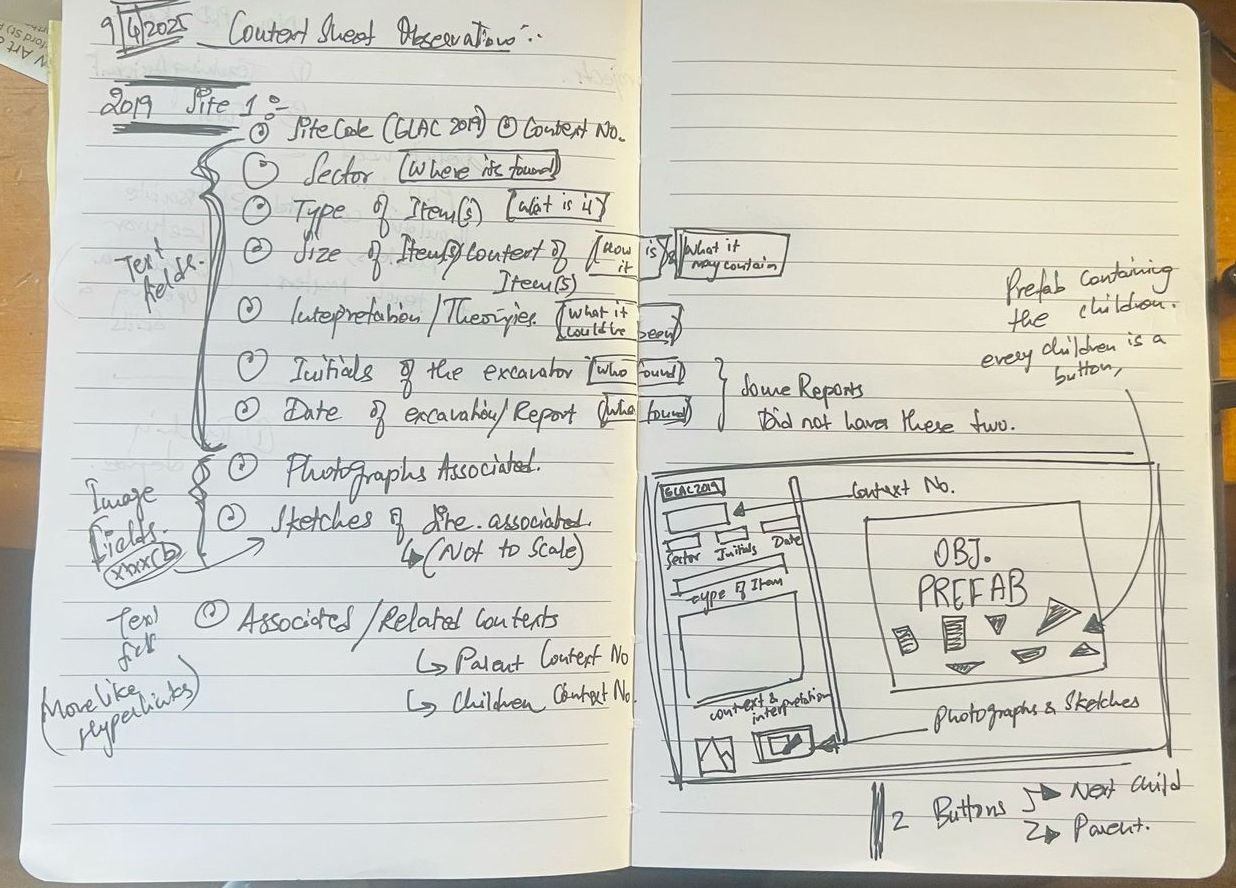 9/4/2025 Context Sheet Observations:-
2019 Site 1:-
Site Code (GLAC 2019) Context No.
Sector (Where its found)
Type of Item(s) (what is it)
Size of Item(s)/Context of Item(s) (How is it) & What it may contain
Interpretation/Theoriyies. (What it could've been)
Initials of the excavator (who found)
Date of excavation/Report (Who found)
Some Reports
Did not have these two.
Text fields.
Photographs Associated.
Sketches of Site. associated.
(Not to Scale)
Image
Fields.
Associated/Related Contexts
Parent Context No
Children Context No.
Text
(More like
Hyperlinks)
Prefab containing
the children.
every children is a
button,
GLAC2019
Context No.
Sector Initials Date
Type of Item
context &
interpretation
OBJ.
PREFAB
Photographs & Sketches
2 Buttons Next Child
Parent.